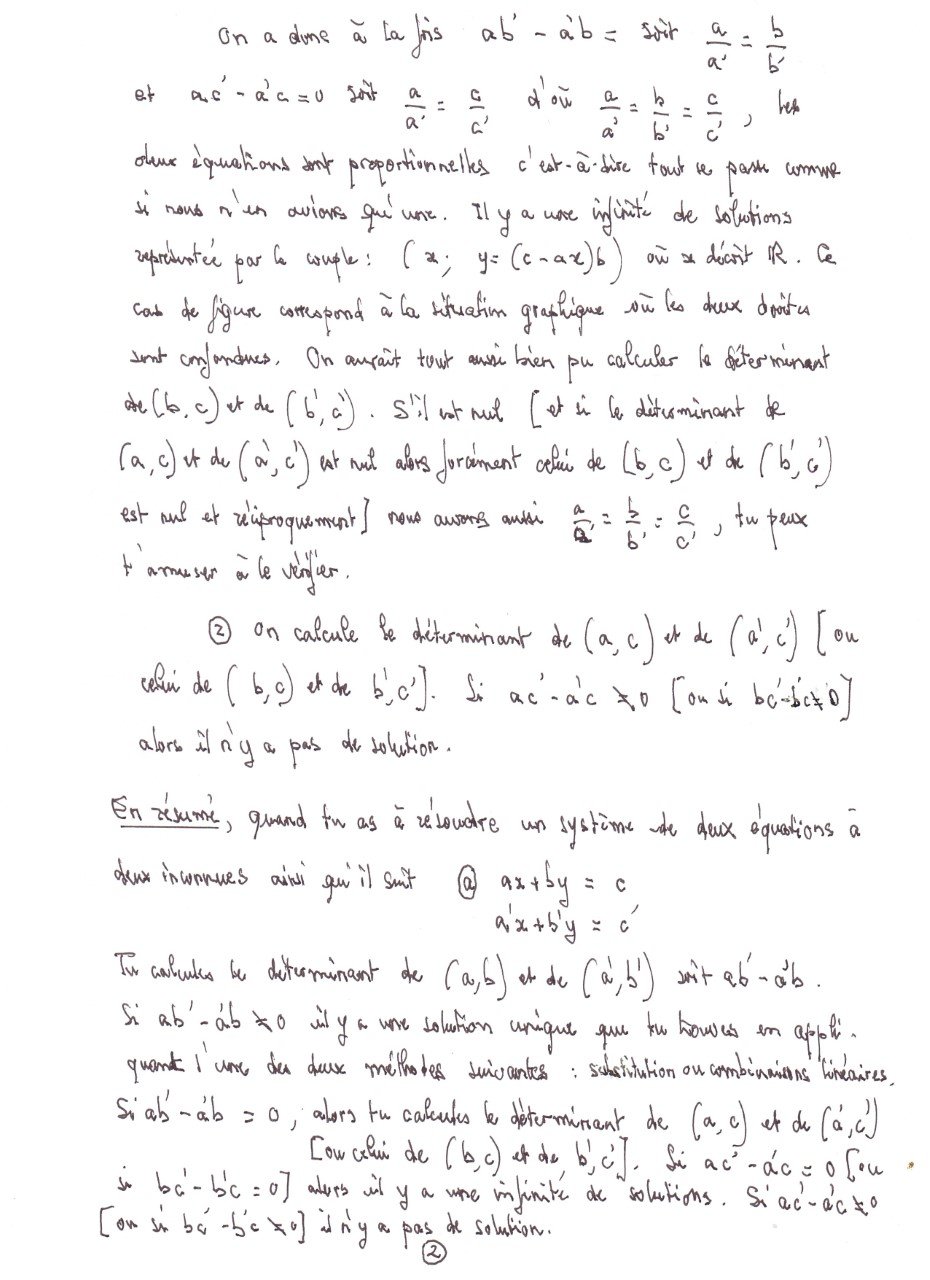 On a donc à la fois ab' - a'b = soit a/a' = b/b'
et ac' - a'c = 0 soit a/a' = c/c' d'où a/a' = b/b' = c/c', les
deux équations sont proportionnelles c'est-à-dire tout se passe comme
si nous n'en avions qu'une. Il y a une infinité de solutions
représentée par le couple : (x; y=(c-ax)b) où x décrit IR. Ce
cas de figure correspond à la situation graphique où les deux droites
sont confondues. On aurait tout aussi bien pu calculer le déterminant
de (b, c) et de (b', c'). S'il est nul [et si le déterminant de
(a, c) et de (a', c') est nul alors forcément celui de (b, c) et de (b', c')
est nul et réciproquement] nous aurons aussi a/a' = b/b' = c/c', tu peux
t'amuser à le vérifier.
② On calcule le déterminant de (a, c) et de (a', c') [ou
celui de (b, c) et de b', c']. Si ac' - a'c ≠ 0 [ou si bc' - b'c ≠ 0]
alors il n'y a pas de solution.
En résumé, quand tu as à résoudre un système de deux équations à
deux inconnues ainsi qu'il suit ⓐ ax + by = c
a'x + b'y = c'
Tu calcules le déterminant de (a, b) et de (a', b') soit ab' - a'b.
Si ab' - a'b ≠ 0 il y a une solution unique que tu trouves en appli-
quant l'une des deux méthodes suivantes : substitution ou combinaisons linéaires.
Si ab' - a'b = 0, alors tu calcules le déterminant de (a, c) et de (a', c')
[ou celui de (b, c) et de b', c']. Si ac' - a'c = 0 [ou
si bc' - b'c = 0] alors il y a une infinité de solutions. Si ac' - a'c ≠ 0
[ou si bc' - b'c ≠ 0] il n'y a pas de solution.
②